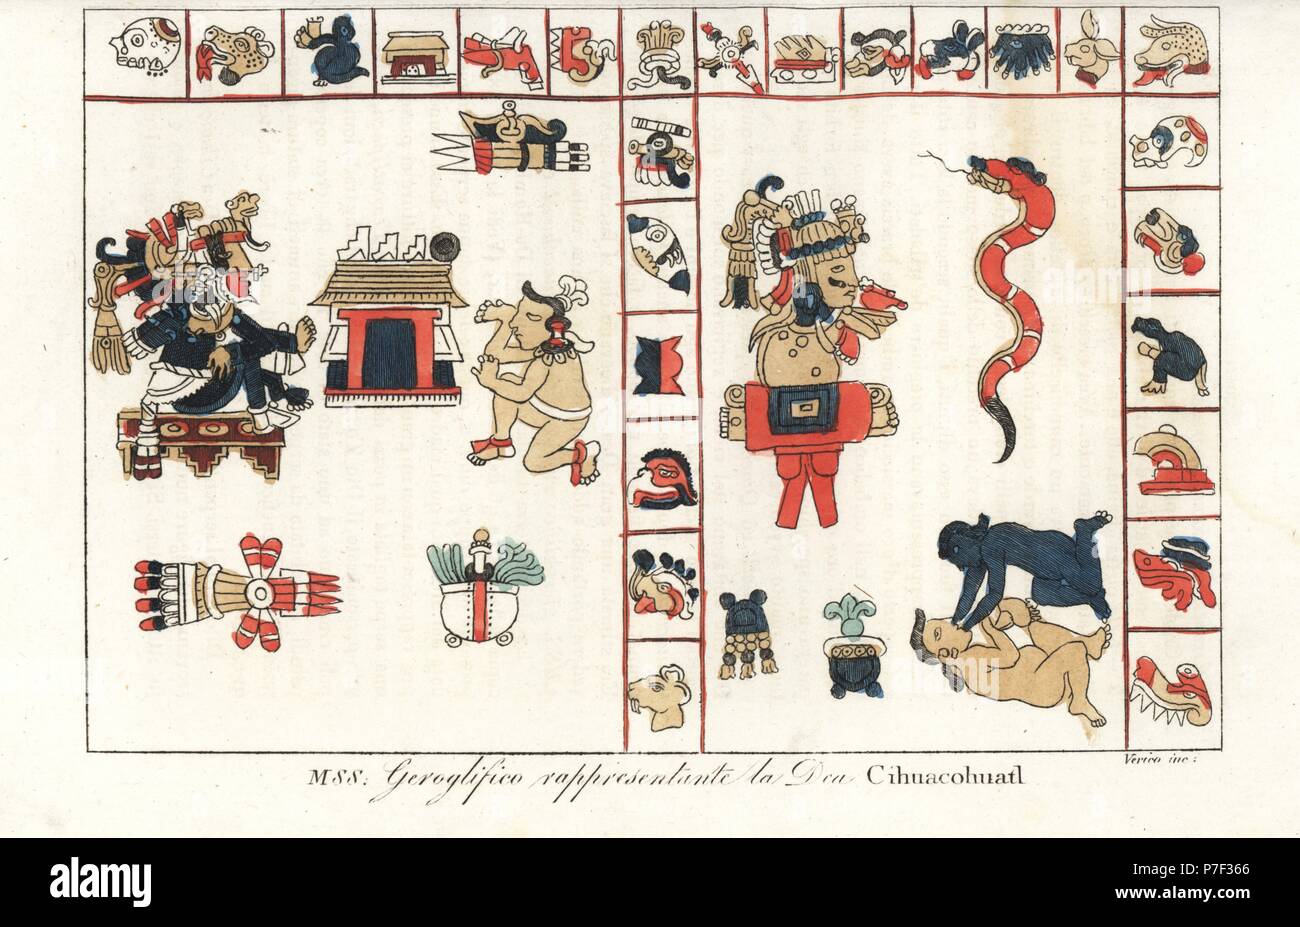 Verico inc:
MSS: Geroglifico rappresentante la Dea Cihuacohuatl
alamy
Image ID: P7F366
www.alamy.com